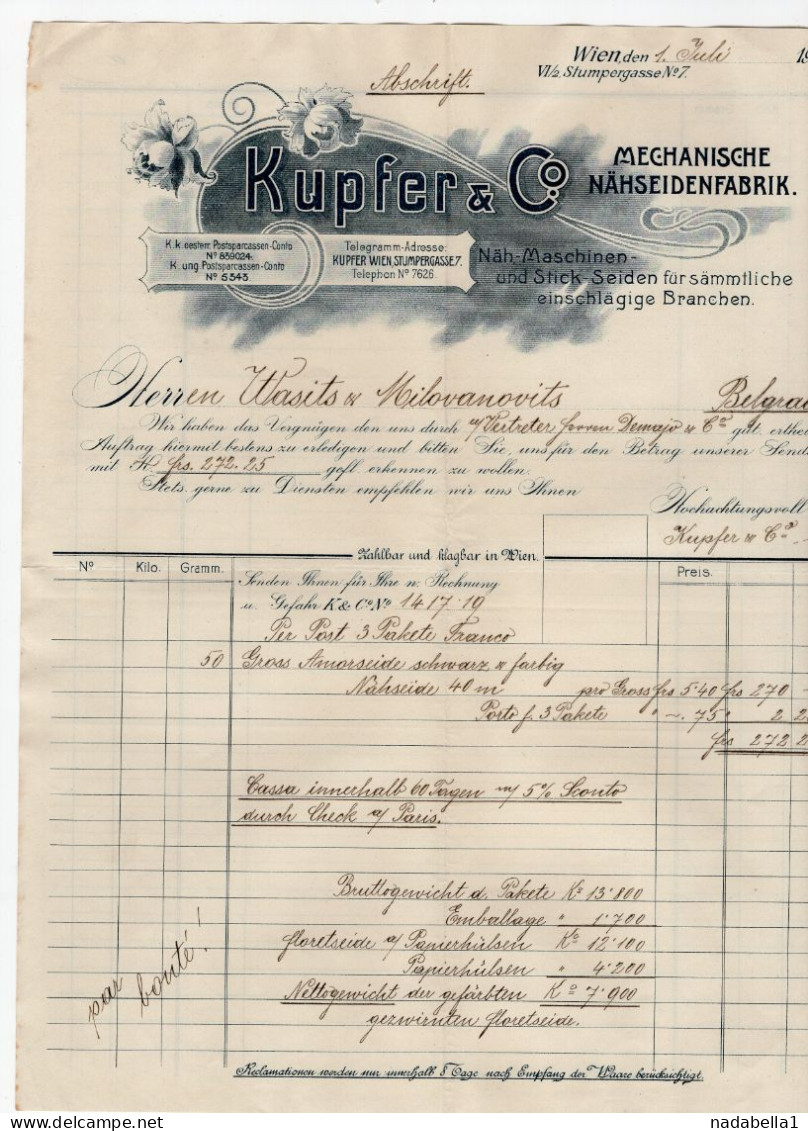 Wien, den 1. Juli 19
VI/2. Stumpergasse No 7.
Abschrift.
Kupfer & Co.
MECHANISCHE
NÄHSEIDENFABRIK.
K.k. oesterr. Postsparcassen-Conto
No 839024.
K. ung Postsparcassen-Conto
No 5343.
Telegramm-Adresse:
KUPFER WIEN, STUMPERGASSE 7.
Telephon No 7626.
Näh,-Maschinen-
und Stick-Seiden für sämmtliche
einschlägige Branchen.
Herren Wasits & Milovanovits Belgrad
Wir haben das Vergnügen den uns durch n/ Vertreter Herren Demajo & Co gut. erthe
Auftrag hiermit bestens zu erledigen und bitten Sie, uns für den Betrag unserer Send
mit K. frs. 272.25 gefl. erkennen zu wollen.
Stets gerne zu Diensten empfehlen wir uns Ihnen
Hochachtungsvoll
Kupfer & Co
Zahlbar und klagbar in Wien.
No Kilo. Gramm. Preis.
Senden Ihnen für Ihre w. Rechnung
u. Gefahr K & Co No 1417·19
Per Post 3 Pakete Franco
50 Gross Amorseide schwarz & farbig
Nähseide 40 m pro Gross frs 5·40 frs 270 -
Porto f. 3 Pakete " -. 75 " 2 2
frs 272 2
Cassa innerhalb 60 Tagen m/ 5% Sconto
durch Check a/ Paris.
Bruttogewicht d. Pakete Ko 13·800
Emballage " 1·700
Floretseide a/ Papierhülsen Ko 12·100
Papierhülsen " 4·200
Nettogewicht der gefärbten Ko 7·900
gezwirnten Floretseide.
par bonté!
Reclamationen werden nur innerhalb 8 Tage nach Empfang der Waare berücksichtigt.
nadabella1